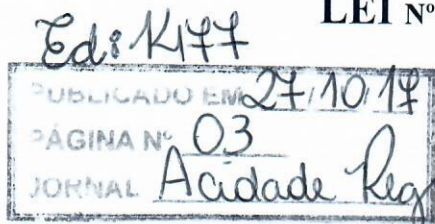 LEI Nº
Ed: 1477
PUBLICADO EM 27/10/17
PÁGINA Nº 03
JORNAL Acidade Reg